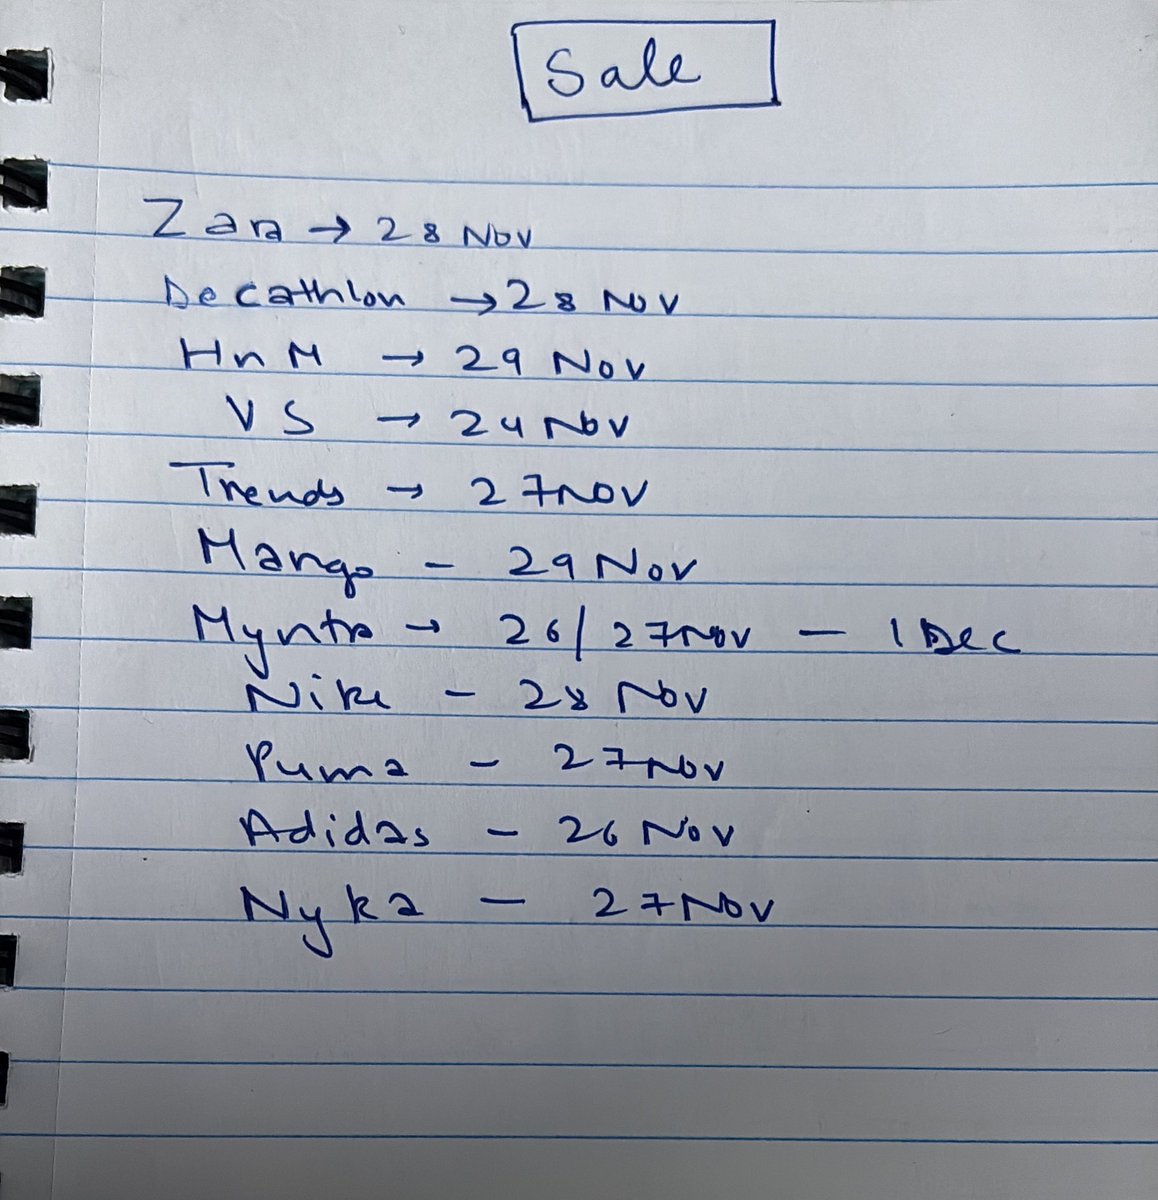 Sale
Zara → 28 Nov
Decathlon → 28 Nov
HnM → 29 Nov
VS → 24 Nov
Trends → 27 Nov
Mango - 29 Nov
Myntra → 26/27 Nov - 1 Dec
Nike - 28 Nov
Puma - 27 Nov
Adidas - 26 Nov
Nyka - 27 Nov